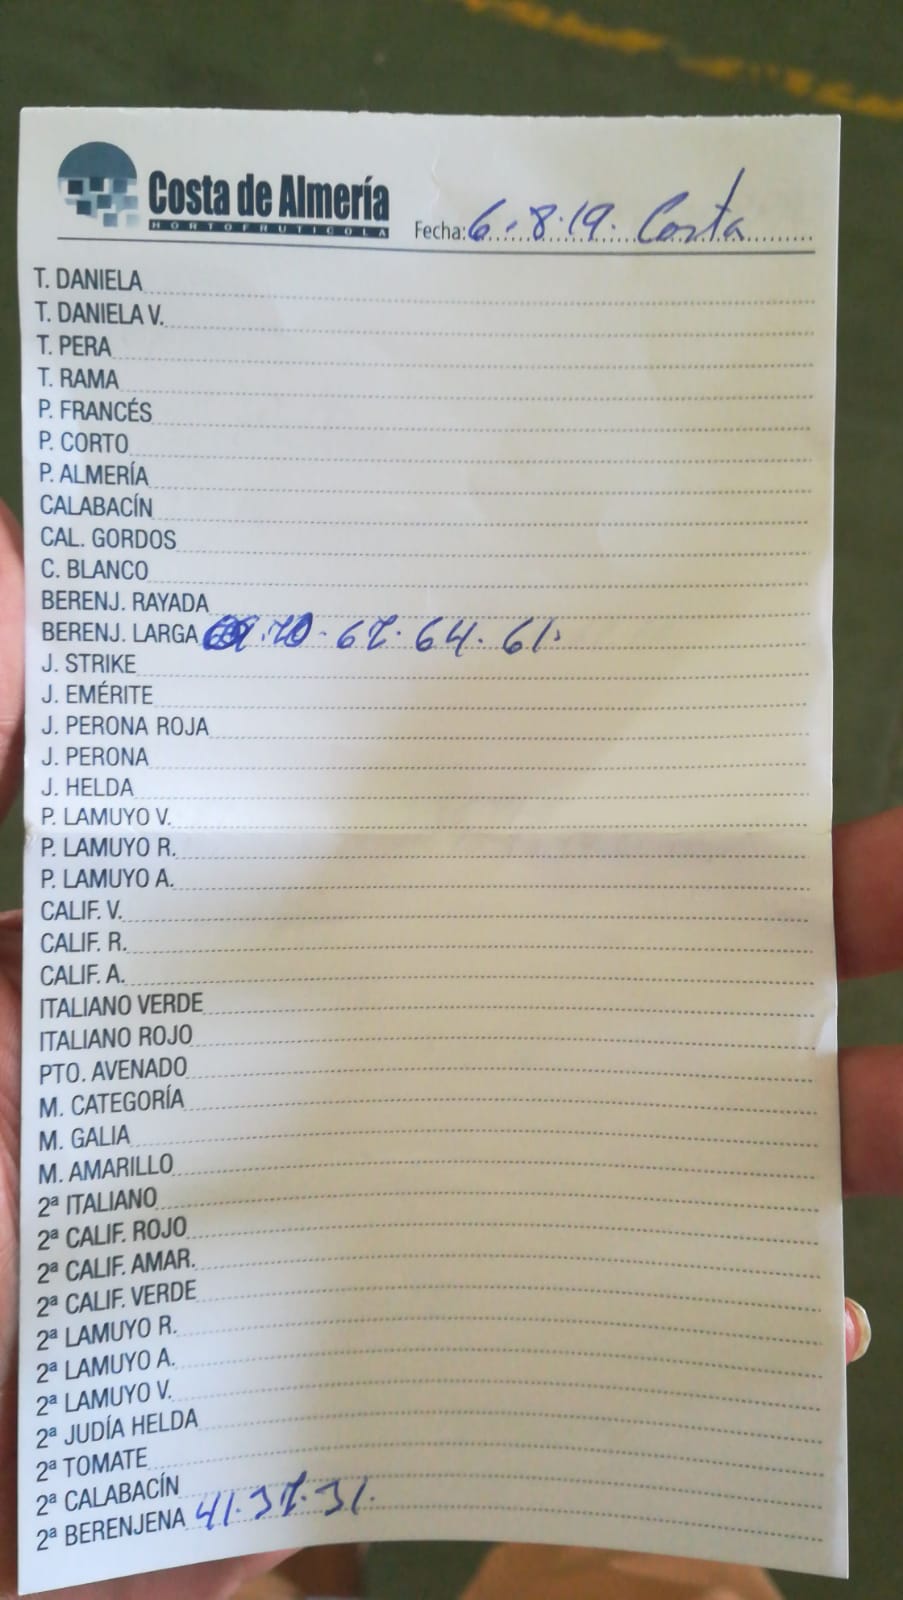 Costa de Almería
HORTOFRUTICOLA
Fecha: 6-8-19. Costa
T. DANIELA
T. DANIELA V.
T. PERA
T. RAMA
P. FRANCÉS
P. CORTO
P. ALMERÍA
CALABACÍN
CAL. GORDOS
C. BLANCO
BERENJ. RAYADA
BERENJ. LARGA 70. 67. 64. 61.
J. STRIKE
J. EMÉRITE
J. PERONA ROJA
J. PERONA
J. HELDA
P. LAMUYO V.
P. LAMUYO R.
P. LAMUYO A.
CALIF. V.
CALIF. R.
CALIF. A.
ITALIANO VERDE
ITALIANO ROJO
PTO. AVENADO
M. CATEGORÍA
M. GALIA
M. AMARILLO
2ª ITALIANO
2ª CALIF. ROJO
2ª CALIF. AMAR.
2ª CALIF. VERDE
2ª LAMUYO R.
2ª LAMUYO A.
2ª LAMUYO V.
2ª JUDÍA HELDA
2ª TOMATE
2ª CALABACÍN
2ª BERENJENA 41. 37. 31.